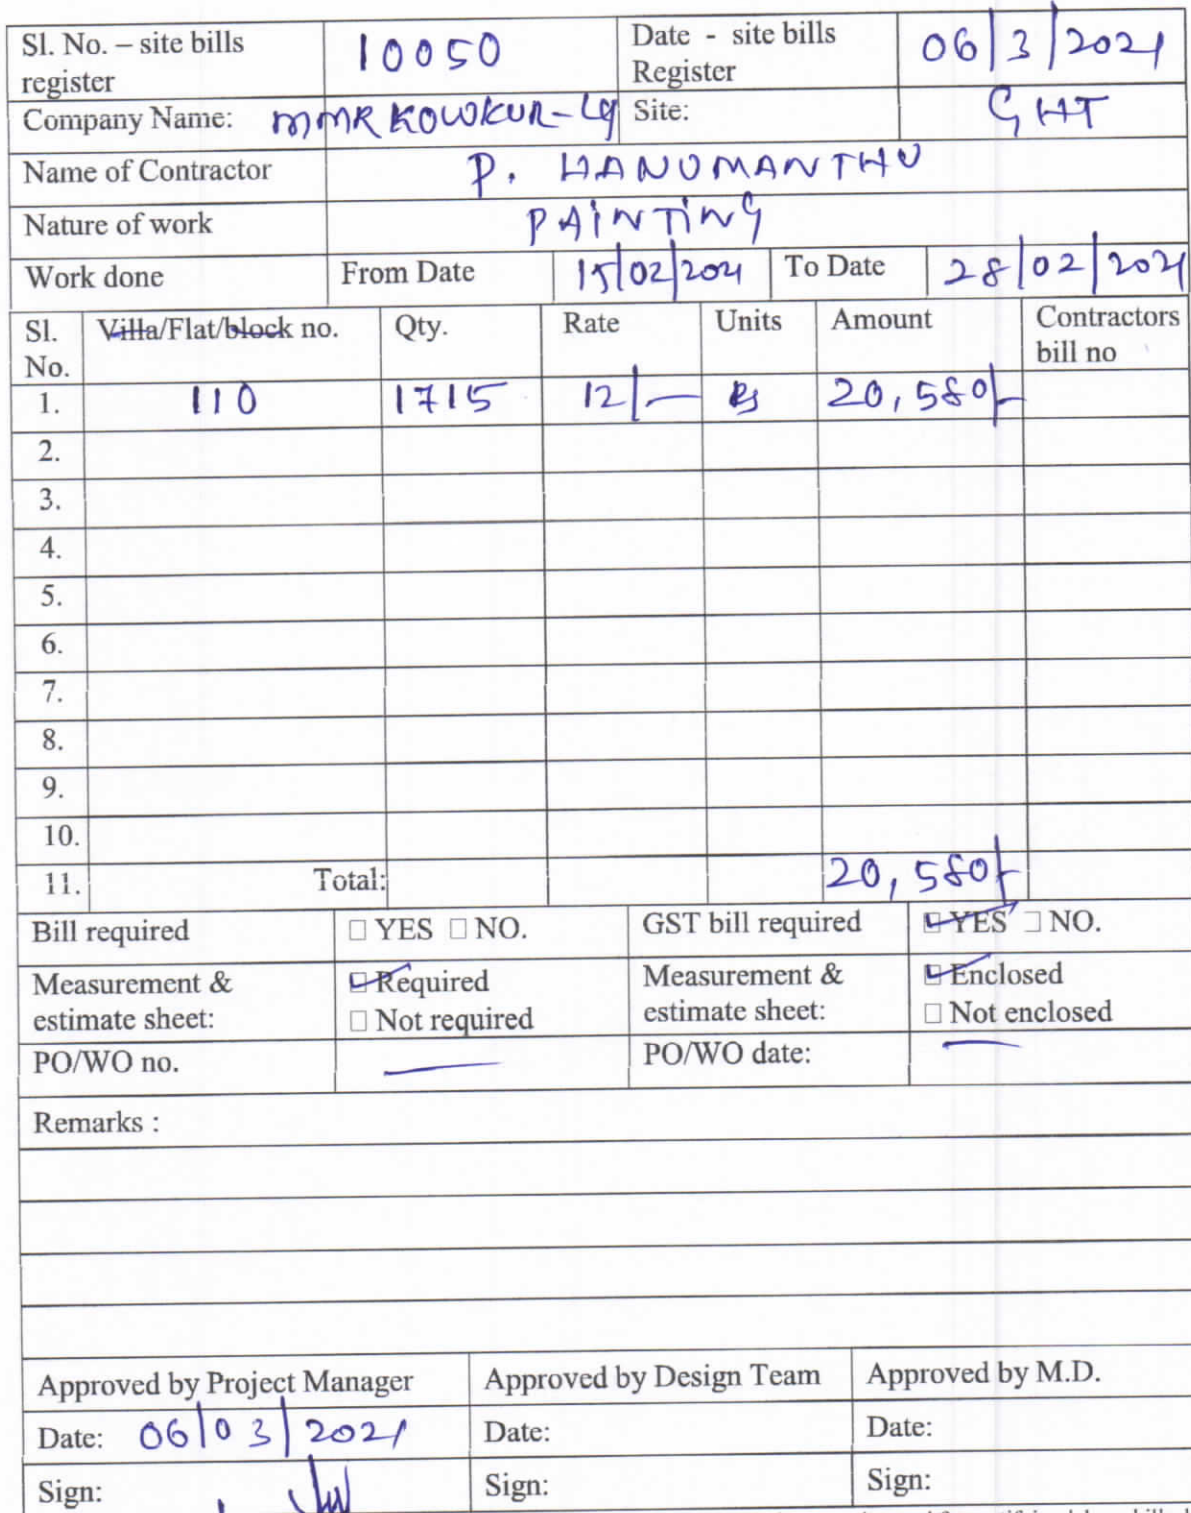 Sl. No. – site bills register 10050 Date - site bills Register 06/3/2021
Company Name: MMR KOWKUR-LLP Site: GHT
Name of Contractor P. HANUMANTHU
Nature of work PAINTING
Work done From Date 15/02/2021 To Date 28/02/2021
Sl. No. Villa/Flat/block no. Qty. Rate Units Amount Contractors bill no
1. 110 1715 12/- 20,580/-
2.
3.
4.
5.
6.
7.
8.
9.
10.
11. Total: 20,580/-
Bill required □ YES □ NO. GST bill required ☑ YES □ NO.
Measurement & estimate sheet: ☑ Required □ Not required Measurement & estimate sheet: ☑ Enclosed □ Not enclosed
PO/WO no. — PO/WO date: —
Remarks :
Approved by Project Manager Approved by Design Team Approved by M.D.
Date: 06/03/2021 Date: Date:
Sign: Sign: Sign: